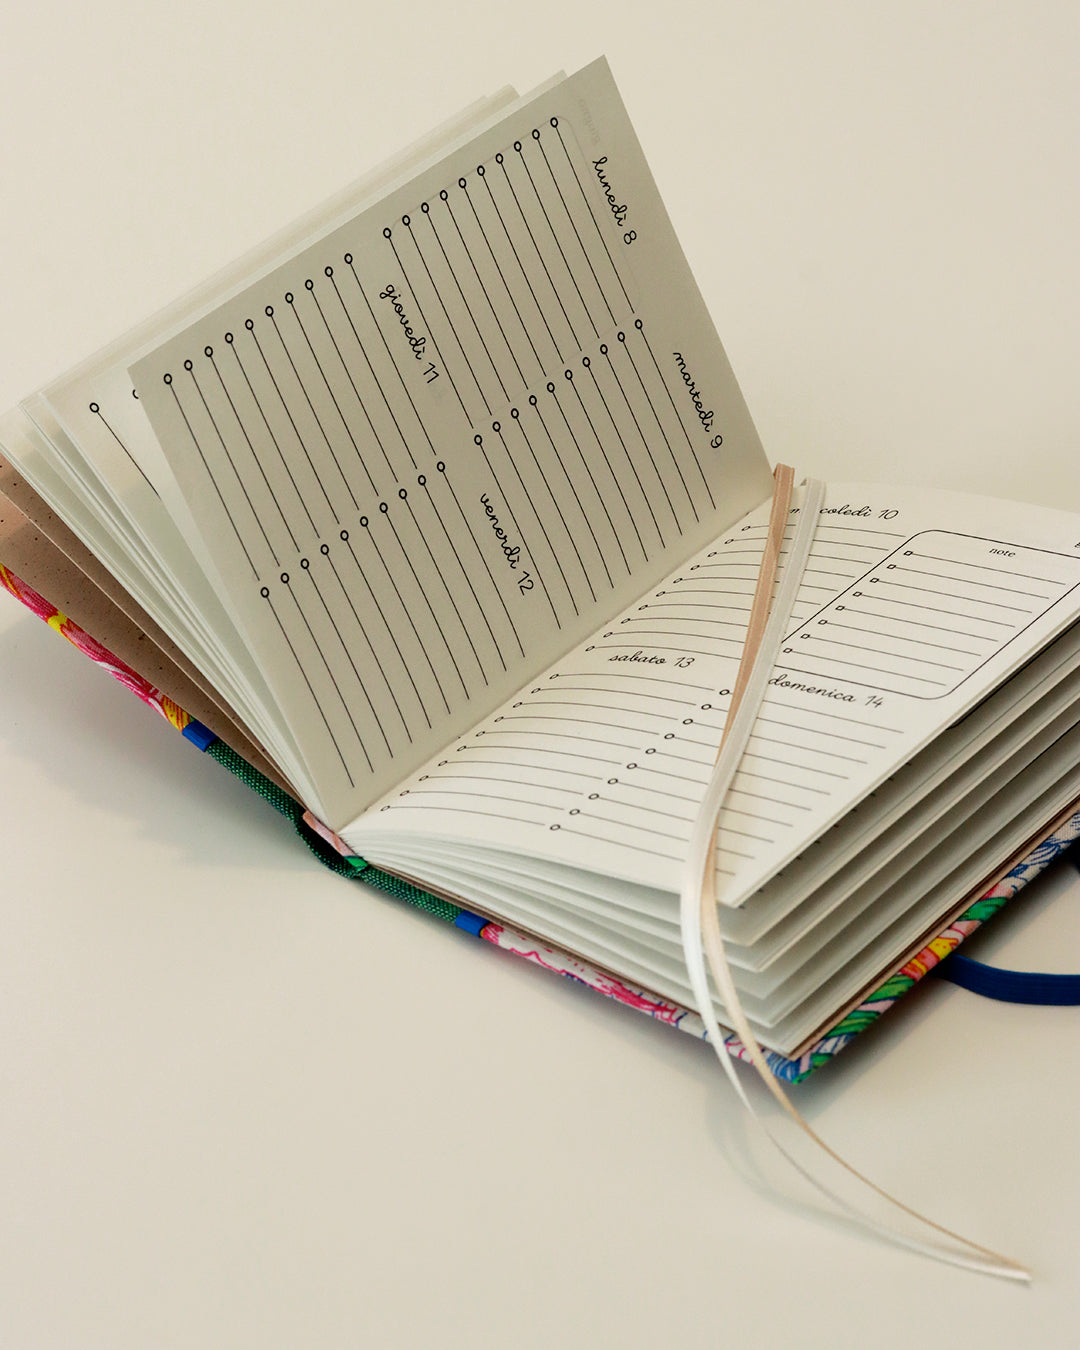 lunedì 8
martedì 9
giovedì 11
venerdì 12
mercoledì 10
note
sabato 13
domenica 14